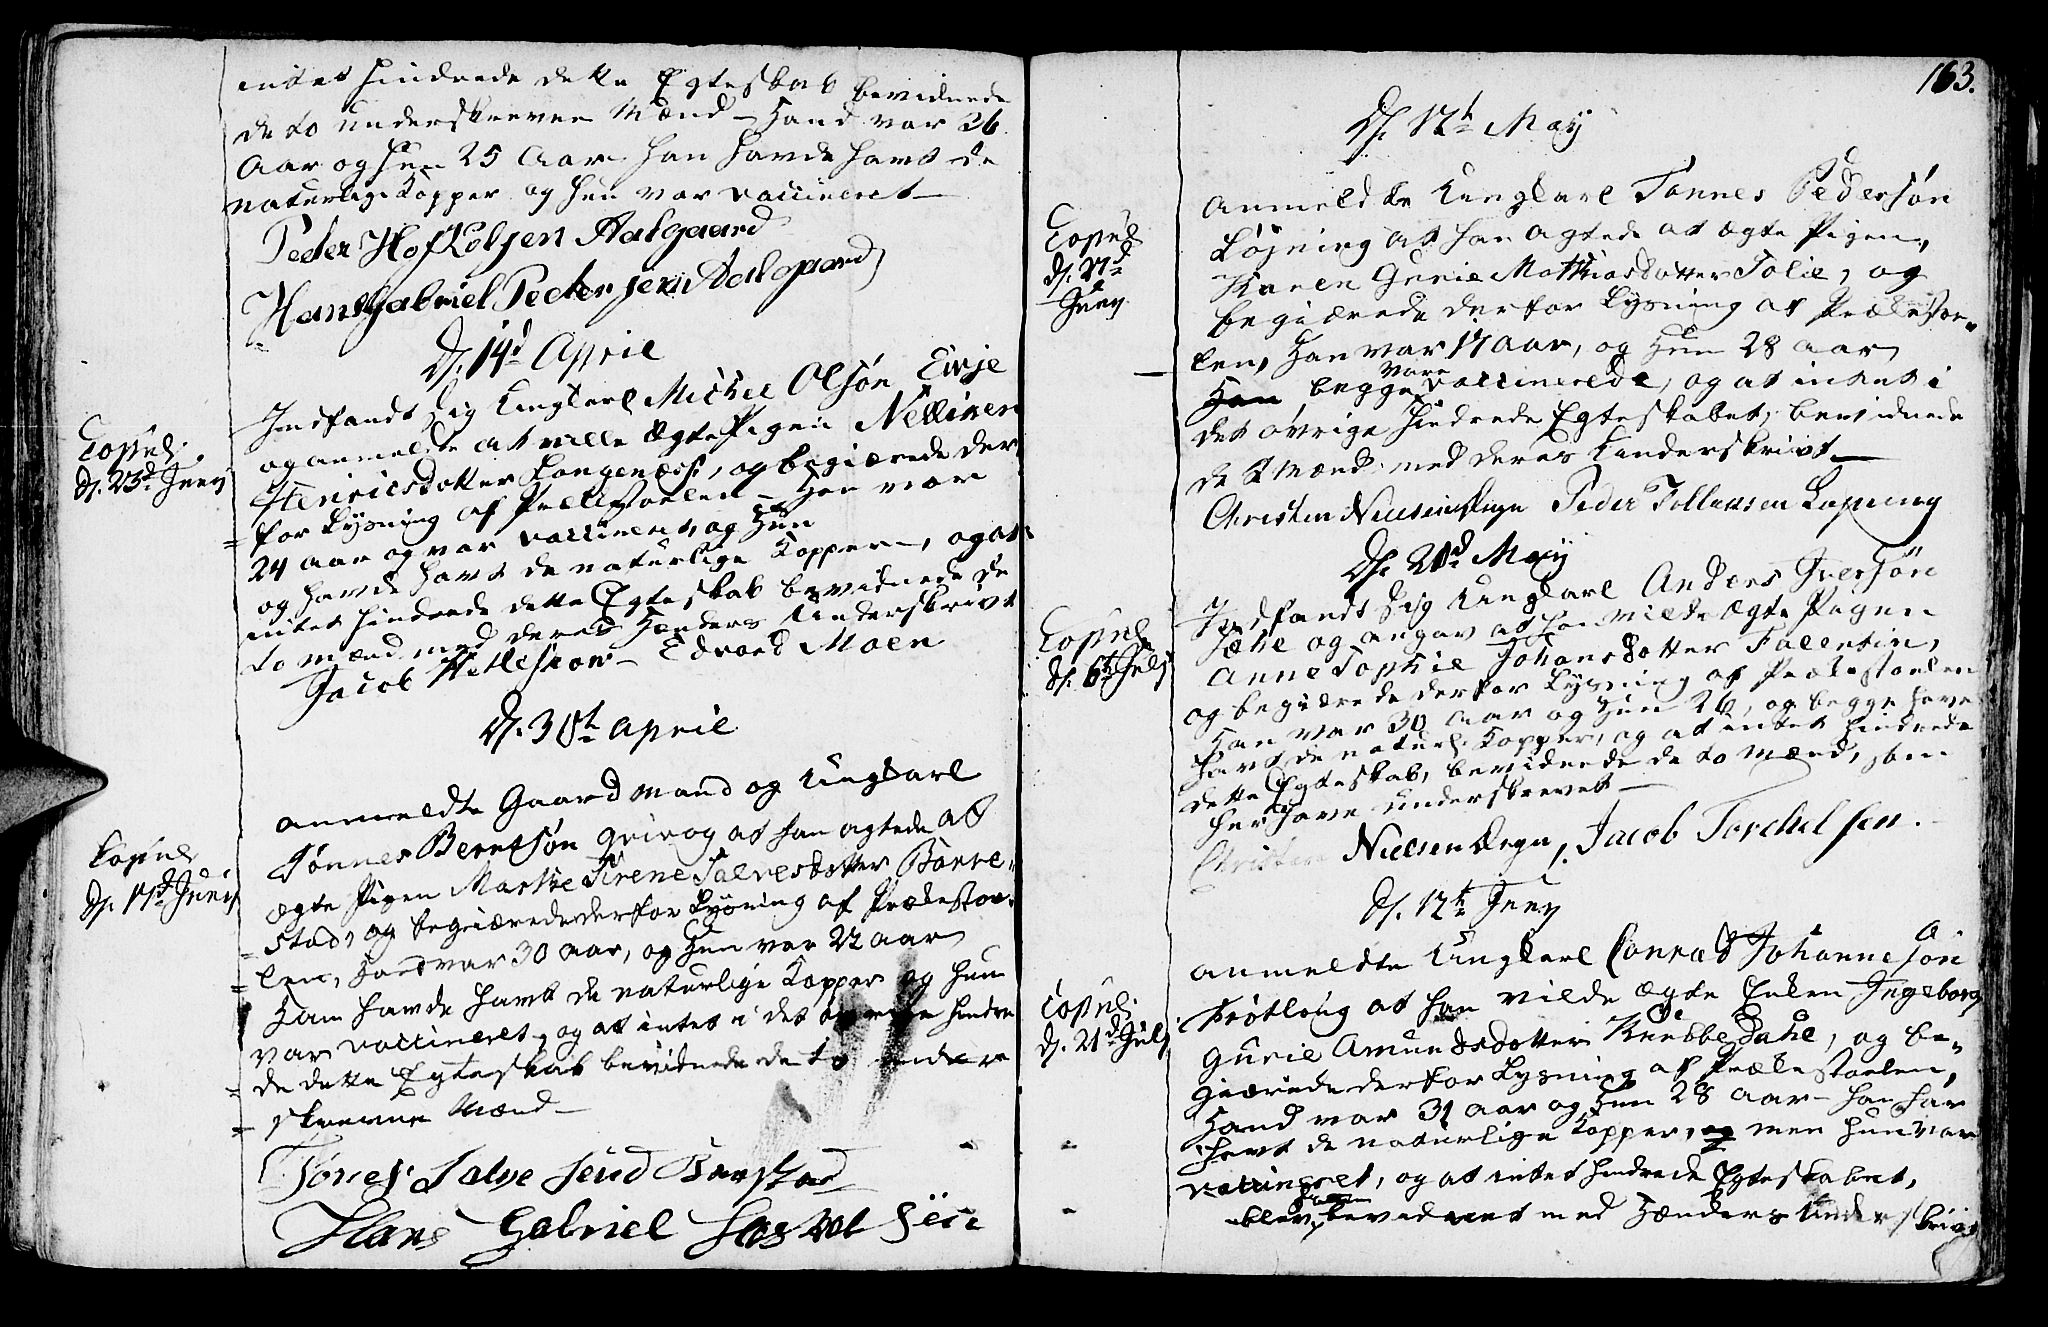 intet hindrede dette Egteskab bevidnede
de to underskrevne Mænd – Hand var 26
Aar og hun 25 Aar. han havde havt de
naturlige Kopper og hun var vaccineret –
Peder Hof Aalgaard
Hans Gabriel Pedersen Aalgaard
D. 14d April
Copul.
d. 23d Juny
Indfandt sig Ungkarl Michel Olsøn Eirje
og anmeldte at ville ægte Pigen Nellinen
Henricsdotter Langenæs, og begiærede der
for Lysning af Prædikestoelen – Han var
24 Aar og var vaccineret, og Hun
og havde havt de naturlige Kopper, og at
intet hindrede dette Egteskab bevidnede de
to mænd med deres Hænders Underskrivt
Jacob – Edvard Moen
D. 30t April
Copul.
d. 17d Juny
anmeldte Gaardmand og Ungkarl
Tønnes Berntsøn at han agtede at
ægte Pigen Marthe Sirene Salvesdotter Barre-
stad, og begiærede derfor Lysning af Prædikestoe-
len, Hand var 30 Aar, og Hun var 22 Aar
Han havde havt de naturlige Kopper og hun
var vaccineret, og at intet i det øvrige hindre
de dette Egteskab bevidnede de to under
skrevne Mænd –
Tønes Salve
Hans Gabriel
163.
D. 12t May
Copul.
d. 27d
Juny
anmeldte Ungkarl Tønnes Pedersøn
Løgning at han agtede at ægte Pigen
Karen Gurie Mathiasdotter Tolie, og
begiærede derfor Lysning af Prædikestoe-
len, Han var 17 aar, og Hun 28 aar
Han begge vare vaccinerede, og at intet i
det øvrige hindrede Egteskabet, bevidnede
de 2 Mænd med deres Underskrivt –
Christen Nielsen Degn Peder Tollevsen
D. 20d May
Copul.
d. 6t July
Indfandt sig Ungkarl Anders Iversøn
og angav at han vilde ægte Pigen
Anne Sophie Johansdotter Salentin,
og begiærede derfor Lysning af Prædikestoelen
Han var 30 Aar og Hun 26, og begge have
havt de naturl. Kopper, og at intet hindrede
dette Egteskab, bevidnede de to Mænd, som
her have underskrevet –
Christen Nielsen Degn, Jacob Torchelsen.
D. 12t Juny
Copul.
d. 21d July
anmeldte Ungkarl Conrad Johannesøn
Frøtlong at han vilde ægte Enken Ingeborg
Gurie Amundsdotter Knebbedahl, og be-
giærede derfor Lysning af Prædikestoelen,
Hand var 31 Aar og Hun 28 Aar – han har
havt de naturlige Kopper, og men hun var
vaccineret, og at intet hindrede Egteskabet,
blev bevidnet med Hænders Underskrivt